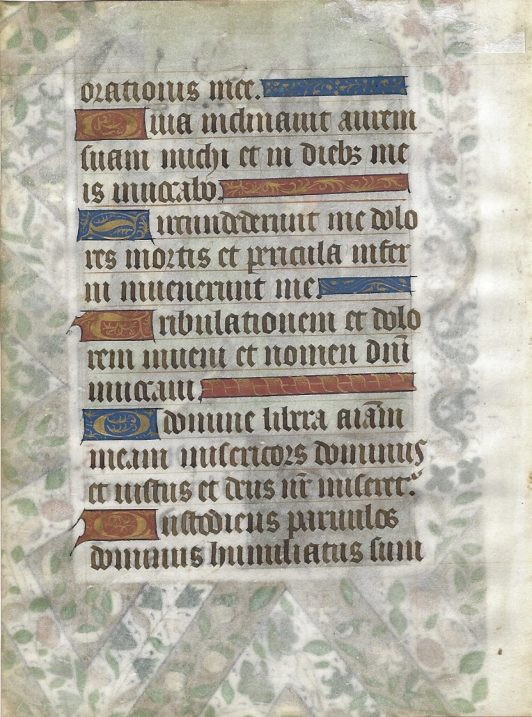 orationis mee.
Quia inclinauit aurem
suam michi et in diebꝫ me
is inuocabo
Circundederunt me dolo
res mortis et pericula infer
ni inuenerunt me.
Tribulationem et dolo
rem inueni et nomen dn̄i
inuocaui
O domine libera aīam
meam misericors dominus
et iustus et deus nr̄ miseret᷑
Custodiens paruulos
dominus humiliatus sum